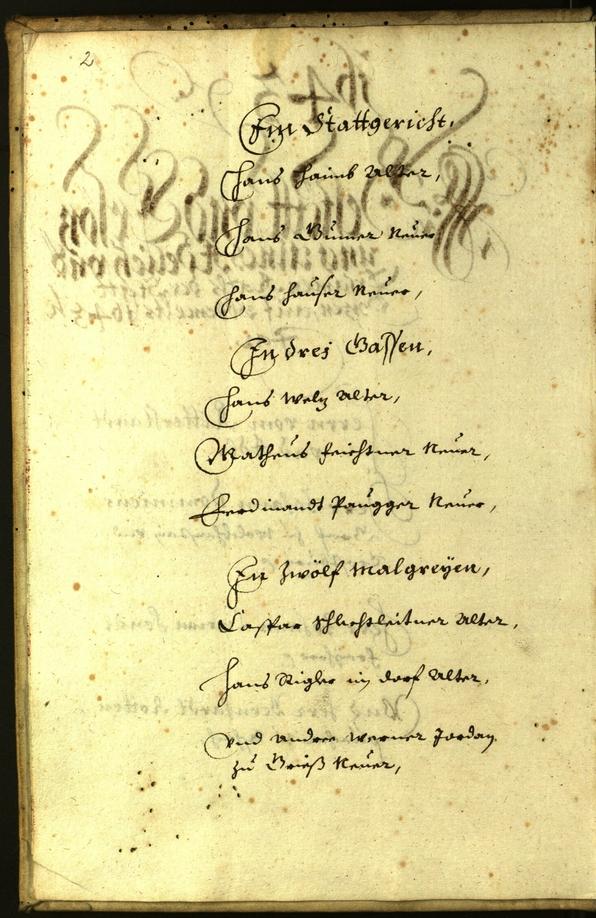 2
Im Stattgericht,
Hanns Haimb Alter,
Hanns Gumer Neuer
Hanns Hauser Neuer,
In drej Gassen,
Hanns Welz Alter,
Matheus Feichtner Neuer,
Ferdinandt Paugger Neuer,
In Zwölf Malgreÿen,
Caspar Schlechtleitner Alter,
Hanns Rigler im dorf Alter,
Vnd Andree Werner Jordan
zu Grieß Neuer,